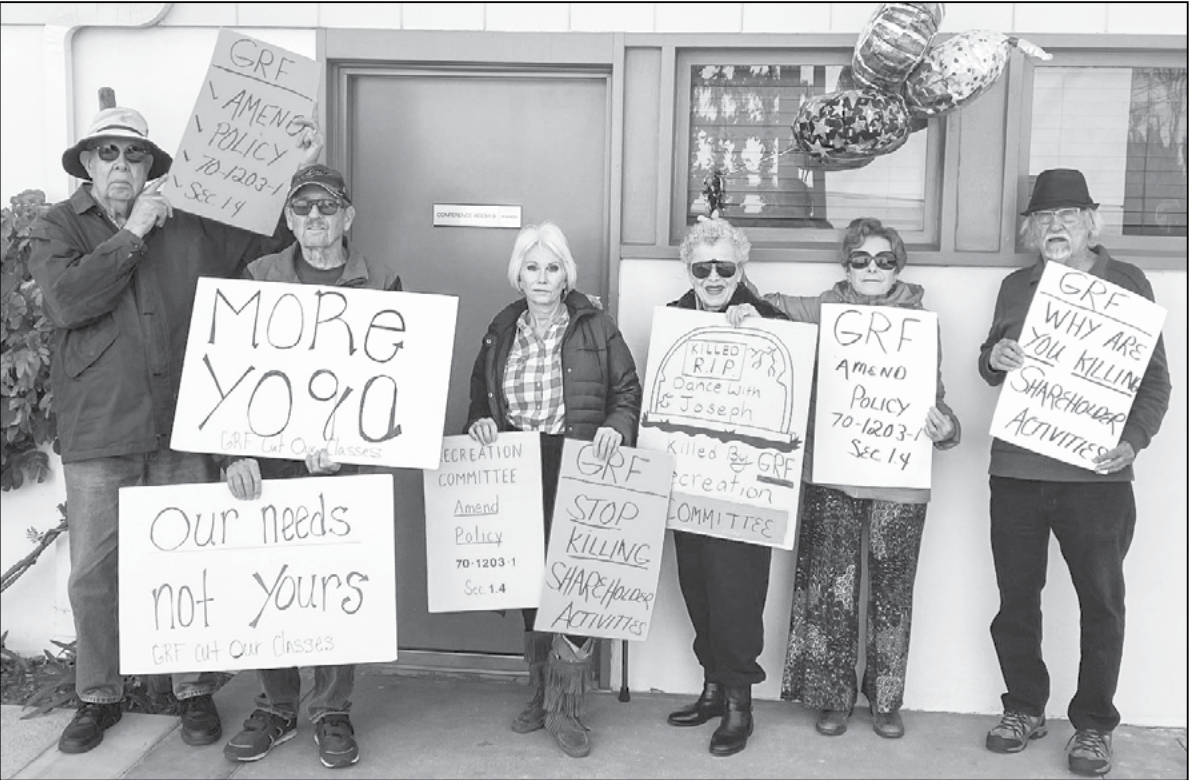 GRF
AMEND
POLICY
70-1203-1
Sec 1.4
CONFERENCE ROOM B
MORE
YOGA
GRF Cut Our Classes
Our needs
not yours
GRF cut Our Classes
RECREATION
COMMITTEE
Amend
Policy
70-1203-1
Sec. 1.4
GRF
STOP
KILLING
SHAREHOLDER
ACTIVITIES
KILLED
R.I.P
Dance with
Joseph
Killed By GRF
ecreation
COMMITTEE
GRF
AMEND
POLICY
70-1203-1
Sec 1.4
GRF
WHY ARE
YOU KILLING
SHAREHOLDER
ACTIVITIES